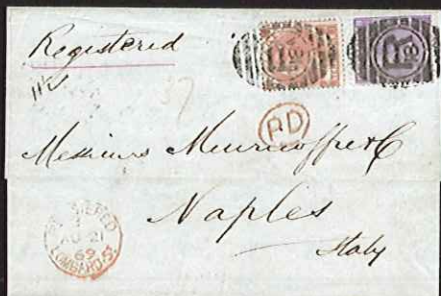 Registered
PD
Messieurs Meuricoffre & C
Naples
Italy
REGISTERED
AU 21
69
LOMBARD ST